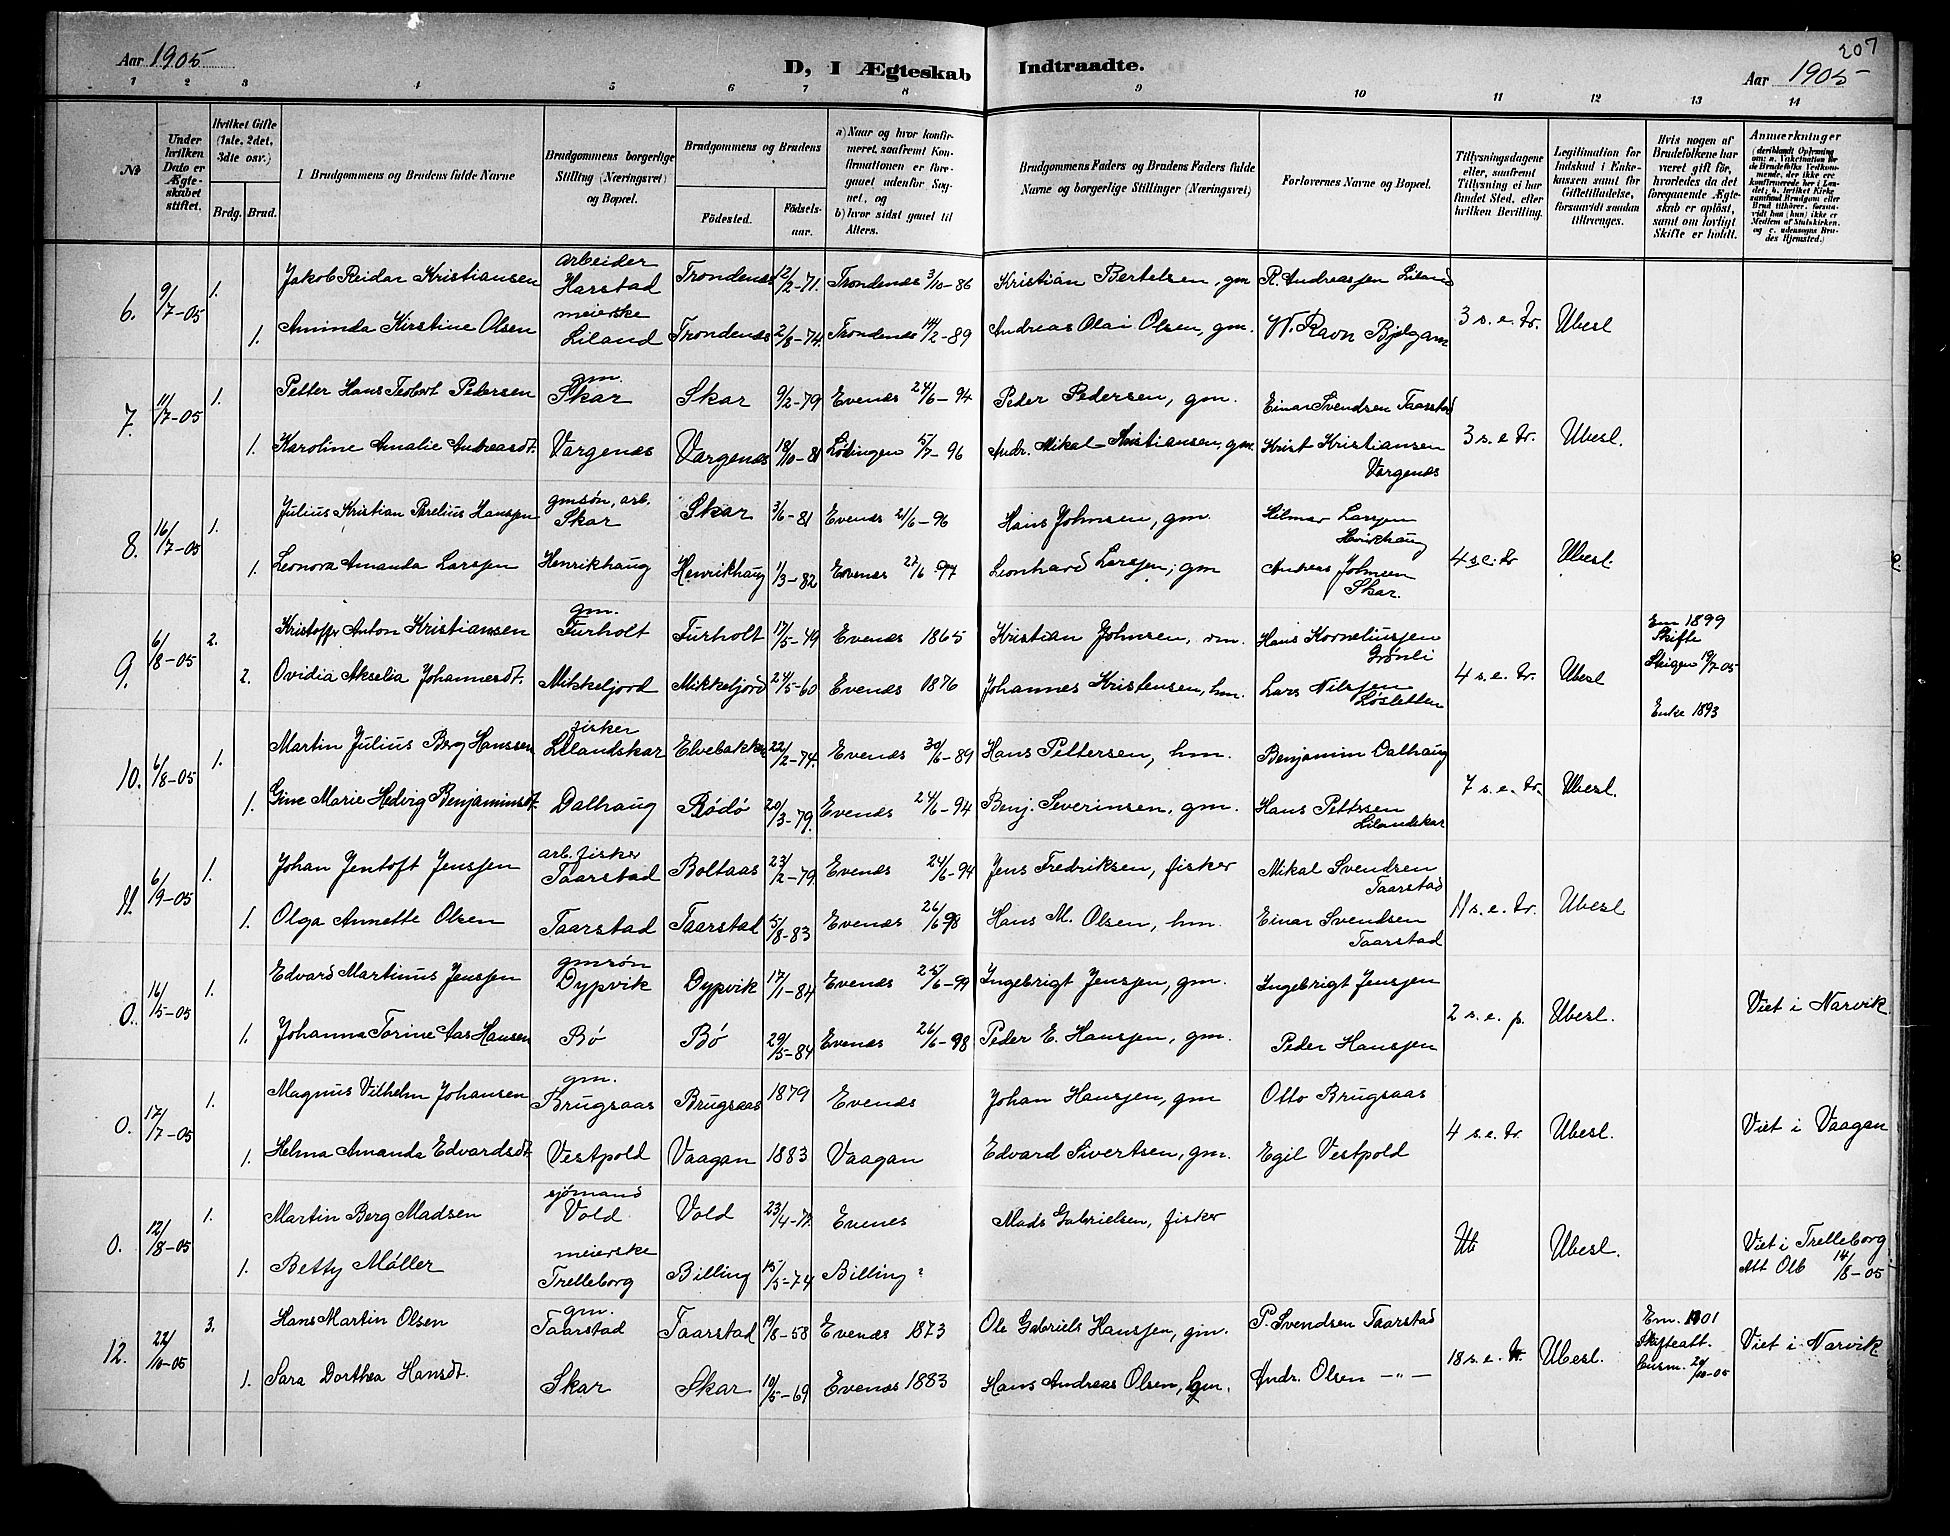 207
Aar 1905 D, I Ægteskab Indtraadte. Aar 1905
1 2 3 4 5 6 7 8 9 10 11 12 13 14
№
Under hvilken Dato er Ægteskabet stiftet.
Hvilket Gifte (1ste, 2det, 3dte osv.)
Brdg. Brud.
I Brudgommens og Brudens fulde Navne
Brudgommens borgerlige Stilling (Næringsvei) og Bopæl.
Brudgommens og Brudens
Fødested. Fødselsaar.
a) Naar og hvor konfirmeret, saafremt Konfirmationen er foregaaet udenfor Sognet, og
b) hvor sidst gaaet til Alters.
Brudgommens Faders og Brudens Faders fulde Navne og borgerlige Stillinger (Næringsvei)
Forlovernes Navne og Bopæl.
Tillysningsdagene eller, saafremt Tillysning ei har fundet Sted, efter hvilken Bevilling.
Legitimation for Indskud i Enkekassen samt for Giftetilladelse, forsaavidt saadan tiltrænges.
Hvis nogen af Brudefolkene har været gift før, hvorledes da det foregaaende Ægteskab er opløst, samt om lovligt Skifte er holdt.
Anmerkninger
arbeider
Jakob Reidar Kristiansen Harstad Trondenes 12/2-71. Trondenes 3/10-86 Kristian Bertelsen, gm R. Andreassen Liland
6. 9/7-05 1. meierske 3 s.e.tr. Ubesl
1. Aminda Kirstine Olsen Liland Trondenes 2/8-74. Trondenes 14/2-89 Andreas Olai Olsen, gm. W. Ravn Bjelgam
gm.
7. 11/7-05 1. Petter Hans Teobert Pedersen Skar Skar 9/2-79 Evenes 24/6-94 Peder Pedersen, gm. Einar Svendsen Taarstad
1. Karoline Amalie Andreasdt. Vargenæs Vargenæs 18/10-81 Lødingen 5/7-96 Andr. Mikal Kristiansen, gm. Krist Kristiansen 3 s.e tr. Ubesl.
Vargenæs
gmsøn, arb.
8. 16/7-05 1. Julius Kristian Parelius Hanssen Skar Skar 3/6-81 Evenes 21/6-96 Hans Johnsen, gm. Hilmar Larssen
Henrikhaug
1. Leonora Amanda Larssen Henrikhaug Henrikhaug 1/3-82 Evenes 27/6-97 Leonhard Larssen, gm Andreas Johnsen 4 s.e. tr Ubesl.
Skar.
gm.
9. 6/8-05 2. Kristoffer Anton Kristiansen Furholt Furholt 17/5-49 Evenes 1865 Kristian Johnsen, gm. Hans Korneliussen Em 1899
Grønli Skifte
2. Ovidia Akselia Johannesdt. Mikkeljord Mikkeljord 24/5-60 Evenes 1876 Johannes Kristensen, hm. Lars Nilssen 4 s.e. tr. Ubesl Skigen 19/7-05
Løsletten
Enke 1893
fisker
10. 6/8-05 1. Martin Julius Berg Hanssen Lilandskar Elvebakken 22/2-74. Evenes 30/6-89 Hans Pettersen, hm. Benjamin Dalhaug
1. Gine Marie Hedvig Benjaminsdt. Dalhaug Rødø 20/3-79. Evenes 24/6-94 Benj. Severinsen, gm. Hans Pettersen 7 s.e. tr. Ubesl.
Lilandskar
arb. fisker
11. 6/9-05 1. Johan Jentoft Jenssen Taarstad Boltaas 23/2-79. Evenes 24/6-94 Jens Fredriksen, fisker Mikal Svendsen
Taarstad
1. Olga Annette Olsen Taarstad Taarstad 5/8-83 Evenes 26/6-98 Hans M. Olsen, hm. Einar Svendsen 11 s.e. tr. Ubesl
Taarstad
gmsøn
0. 16/5-05 1. Edvard Martinus Jenssen Dypvik Dypvik 17/1-84 Evenes 25/6-99 Ingebrigt Jenssen, gm. Ingebrigt Jenssen
1. Johanna Torine Aas Hansen Bø Bø 29/5-84 Evenes 26/6-98 Peder E. Hanssen, gm. Peder Hanssen 2 s.e. p. Ubesl. Viet i Narvik.
gm.
0. 17/7-05 1. Magnus Vilhelm Johansen Brugsaas Brugsaas 1879 Evenes Johan Hanssen, gm Otto Brugsaas
1. Helma Amanda Edvardsdt. Vestpold Vaagan 1883 Vaagan Edvard Sivertsen, gm. Egil Vestpold 4 s.e. tr Ubesl. Viet i Vaagan
sjømand
0. 12/8-05 1. Martin Berg Madsen Vold Vold 23/4-77. Evenes Mads Gabrielsen, fisker
meierske Ubesl. Viet i Trelleborg
1. Betty Møller Trelleborg Billing 15/5-74 Billing? Att Olb 14/8-05
gm.
12. 22/10-05 3. Hans Martin Olsen Taarstad Taarstad 19/8-58 Evenes 1873 Ole Gabriels Hanssen, gm. P. Svendsen Taarstad Em. 1901
18 s.e. tr. Ubesl. Skifteatt. Viet i Narvik
1. Sara Dorthea Hansdt. Skar Skar 10/5-69 Evenes 1883 Hans Andreas Olsen, gm. Andr. Olsen -"-